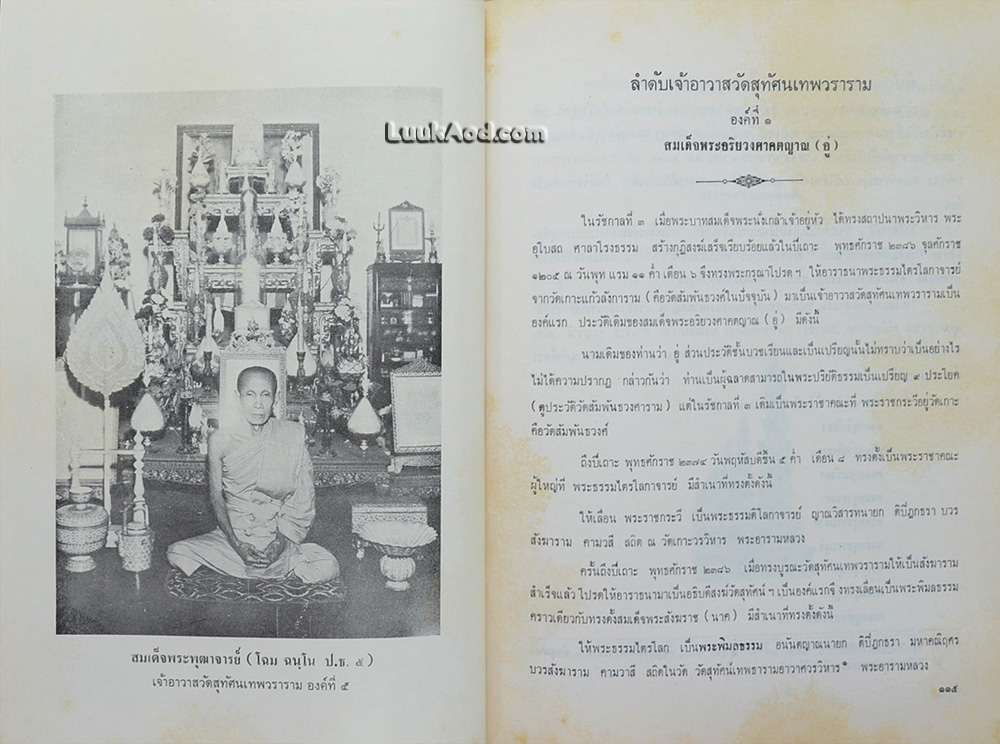 LuukAod.com
สมเด็จพระพุฒาจารย์ (โฉม ฉนฺโน ป.ธ. ๕)
เจ้าอาวาสวัดสุทัศนเทพวราราม องค์ที่ ๕
ลำดับเจ้าอาวาสวัดสุทัศนเทพวราราม
องค์ที่ ๑
สมเด็จพระอริยวงศาคตญาณ (อู่)
ในรัชกาลที่ ๓ เมื่อพระบาทสมเด็จพระนั่งเกล้าเจ้าอยู่หัว ได้ทรงสถาปนาพระวิหาร พระ
อุโบสถ ศาลาโรงธรรม สร้างกุฎิสงฆ์เสร็จเรียบร้อยแล้วในปีเถาะ พุทธศักราช ๒๓๘๖ จุลศักราช
๑๒๐๕ ณ วันพุท แรม ๑๑ ค่ำ เดือน ๖ จึงทรงพระกรุณาโปรด ฯ ให้อาราธนาพระธรรมไตรโลกาจารย์
จากวัดเกาะแก้วลังการาม (คือวัดสัมพันธวงศ์ในปัจจุบัน) มาเป็นเจ้าอาวาสวัดสุทัศนเทพวรารามเป็น
องค์แรก ประวัติเดิมของสมเด็จพระอริยวงศาคตญาณ (อู่) มีดังนี้
นามเดิมของท่านว่า อู่ ส่วนประวัติชั้นบวชเรียนและเป็นเปรียญนั้นไม่ทราบว่าเป็นอย่างไร
ไม่ได้ความปรากฏ กล่าวกันว่า ท่านเป็นผู้ฉลาดสามารถในพระปริยัติธรรมเป็นเปรียญ ๙ ประโยค
(ดูประวัติวัดสัมพันธวงศาราม) แต่ในรัชกาลที่ ๓ เดิมเป็นพระราชาคณะที่ พระราชกระวีอยู่วัดเกาะ
คือวัดสัมพันธวงศ์
ถึงปีเถาะ พุทธศักราช ๒๓๗๔ วันพฤหัสบดีขึ้น ๕ ค่ำ เดือน ๘ ทรงตั้งเป็นพระราชาคณะ
ผู้ใหญ่ที่ พระธรรมไตรโลกาจารย์ มีสำเนาที่ทรงตั้งดังนี้
ให้เลื่อน พระราชกระวี เป็นพระธรรมติไลกาจารย์ ญาณวิสารทนายก ติปิฎกธรา บวร
สังฆาราม คามวาสี สถิต ณ วัดเกาะวรวิหาร พระอารามหลวง
ครั้นถึงปีเถาะ พุทธศักราช ๒๓๘๖ เมื่อทรงบูรณะวัดสุทัศนเทพวรารามให้เป็นสังฆาราม
สำเร็จแล้ว โปรดให้อาราธนามาเป็นอธิบดีสงฆ์วัดสุทัศน์ ฯ เป็นองค์แรกจึ ทรงเลื่อนเป็นพระพิมลธรรม
คราวเดียวกับทรงตั้งสมเด็จพระสังฆราช (นาค) มีสำเนาที่ทรงตั้งดังนี้
ให้พระธรรมไตรโลก เป็นพระพิมลธรรม อนันตญาณนายก ติปิฎกธรา มหาคณิฤศร
บวรสังฆาราม คามวาสี สถิตในวัด วัดสุทัศน์เทพธารามอาวาศวรวิหาร พระอารามหลวง
๑๑๕